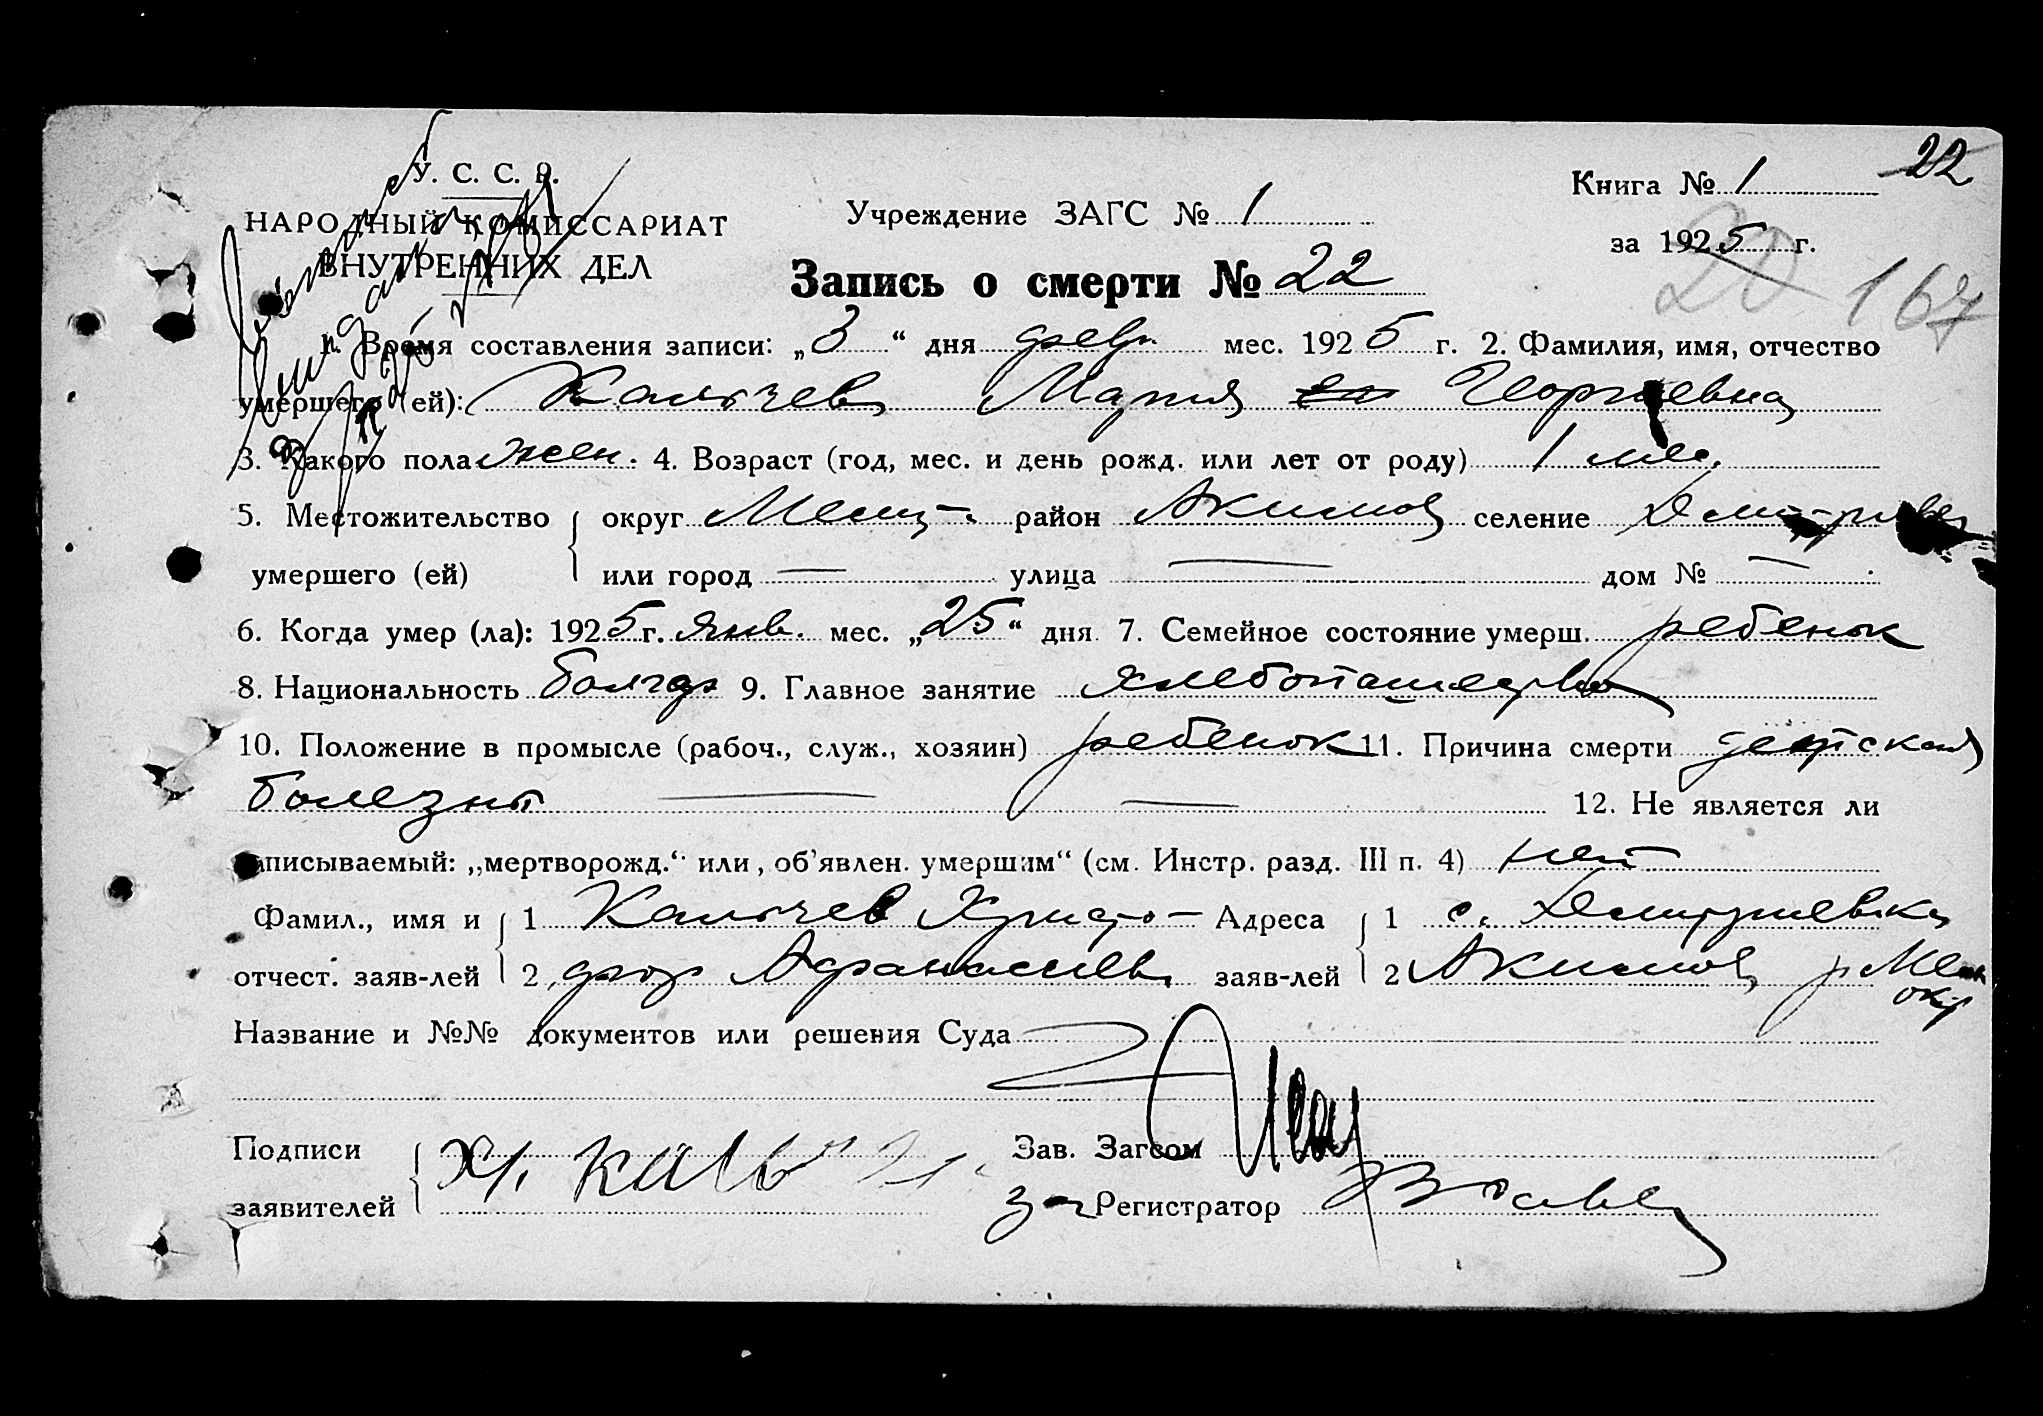 22
У. С. С. Р.
НАРОДНЫЙ КОМИССАРИАТ
ВНУТРЕННИХ ДЕЛ
Учреждение ЗАГС № 1
Книга № 1
за 1925 г.
20 167
Запись о смерти № 22
1. Время составления записи: „3“ дня февр. мес. 1925 г. 2. Фамилия, имя, отчество
умершего (ей): Кальчев Мария Георгиевна
3. Какого пола жен. 4. Возраст (год, мес. и день рожд. или лет от роду) 1 мес.
5. Местожительство округ Мелит. район Акимов селение Дмитриев
умершего (ей) или город — улица — дом № —
6. Когда умер (ла): 1925 г. янв. мес. „25“ дня 7. Семейное состояние умерш. ребенок
8. Национальность болгар 9. Главное занятие хлебопашество
10. Положение в промысле (рабоч., служ., хозяин) ребенок 11. Причина смерти детская
болезнь — — 12. Не является ли
записываемый: „мертворожд.“ или „об'явлен. умершим“ (см. Инстр. разд. III п. 4) нет
Фамил., имя и 1 Кальчев Христо- Адреса 1 с. Дмитриевка
отчест. заяв-лей 2 фор Афанасиев заяв-лей 2 Акимов р Мел
окр
Название и №№ документов или решения Суда
Подписи Хр. Кальч Зав. Загсом
заявителей За Регистратор